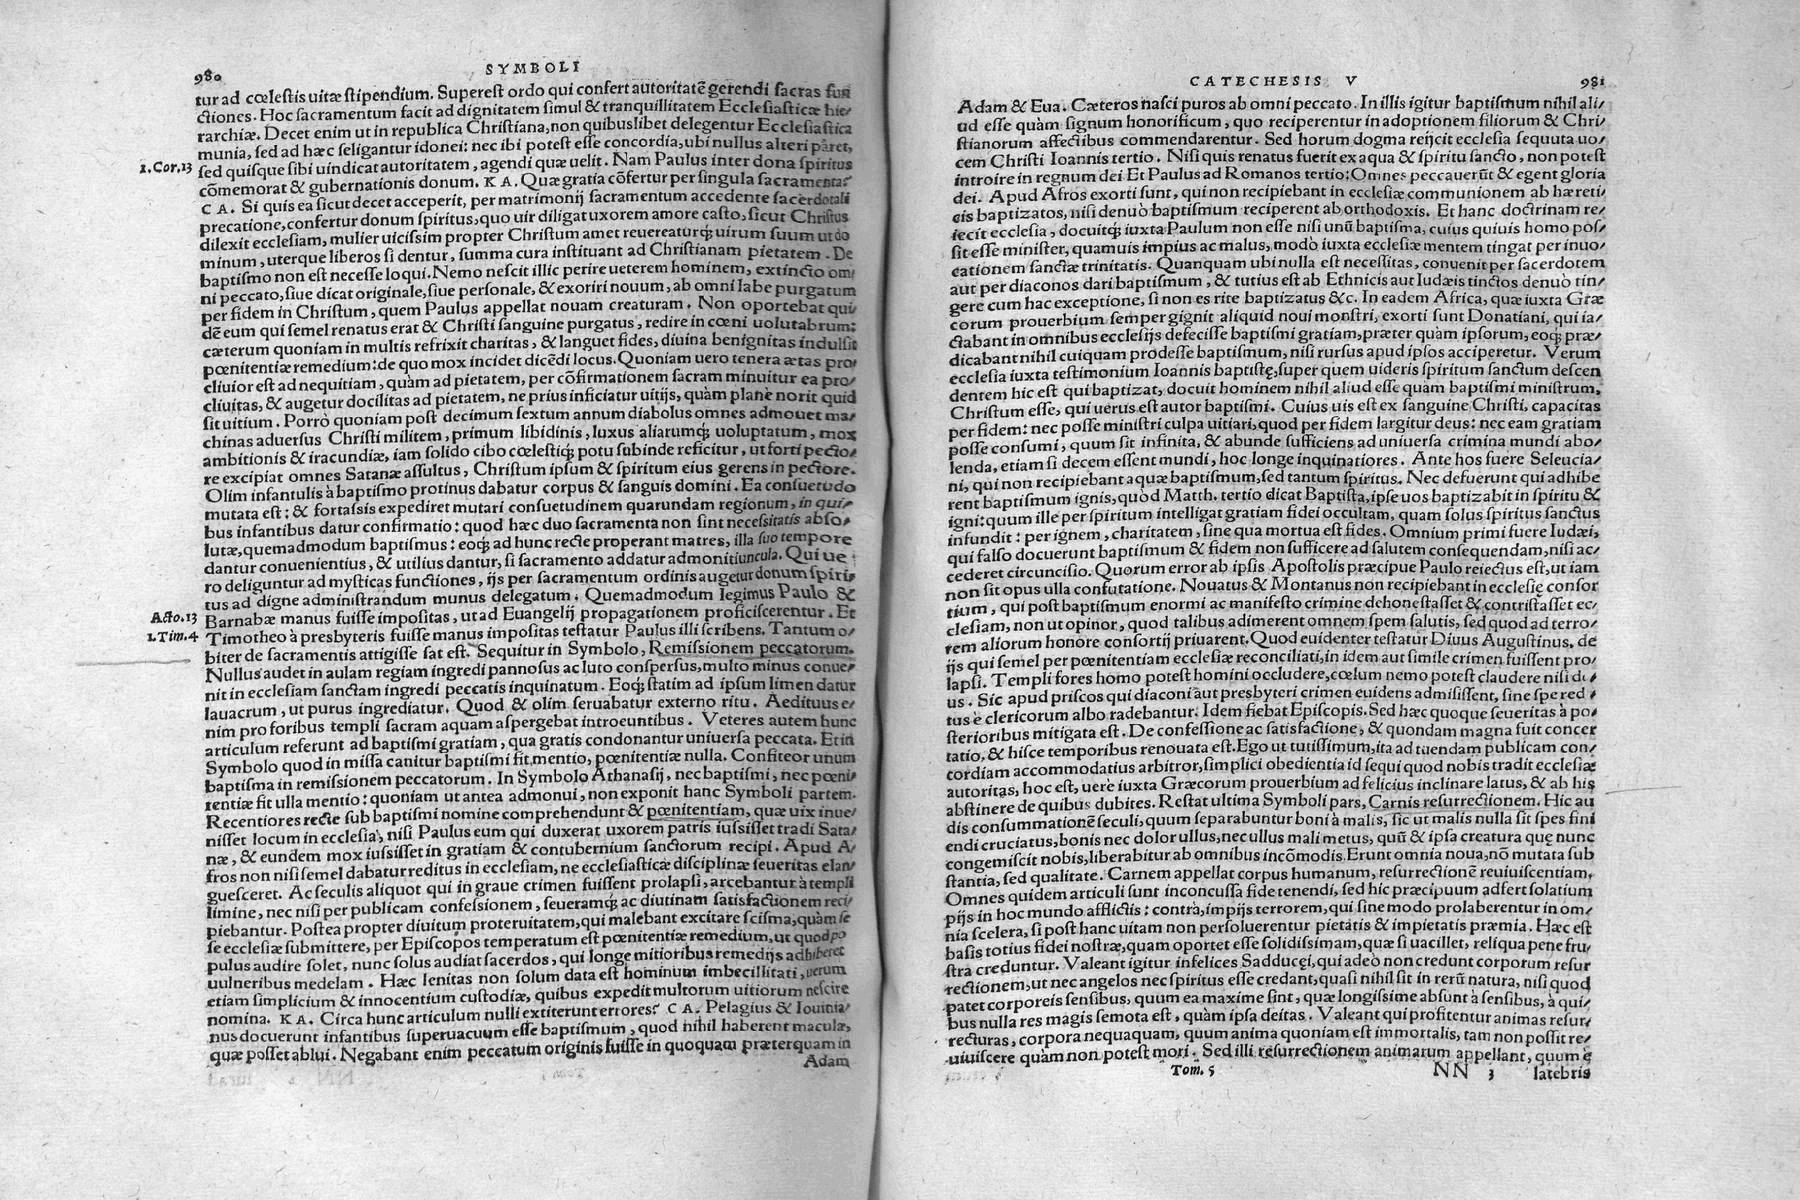 980
SYMBOLI
tur ad cœlestis uitæ stipendium. Superest ordo qui confert autoritatē gerendi sacras fun
ctiones. Hoc sacramentum facit ad dignitatem simul & tranquillitatem Ecclesiasticæ hie-
rarchiæ. Decet enim ut in republica Christiana, non quibuslibet delegentur Ecclesiastica
munia, sed ad hæc seligantur idonei: nec ibi potest esse concordia, ubi nullus alteri paret,
1. Cor. 13
sed quisque sibi uindicat autoritatem, agendi quæ uelit. Nam Paulus inter dona spiritus
cōmemorat & gubernationis donum. KA. Quæ gratia cōfertur per singula sacramenta?
CA. Si quis ea sicut decet acceperit, per matrimonij sacramentum accedente sacerdotali
precatione, confertur donum spiritus, quo uir diligat uxorem amore casto, sicut Christus
dilexit ecclesiam, mulier uicissim propter Christum amet reuereaturq́; uirum suum ut do
minum, uterque liberos si dentur, summa cura instituant ad Christianam pietatem. De
baptismo non est necesse loqui. Nemo nescit illic perire ueterem hominem, extincto om-
ni peccato, siue dicat originale, siue personale, & exoriri nouum, ab omni labe purgatum
per fidem in Christum, quem Paulus appellat nouam creaturam. Non oportebat qui-
dē eum qui semel renatus erat & Christi sanguine purgatus, redire in cœni uolutabrum:
cæterum quoniam in multis refrixit charitas, & languet fides, diuina benignitas indulsit
pœnitentiæ remedium: de quo mox incidet dicēdi locus. Quoniam uero tenera ætas pro-
cliuior est ad nequitiam, quàm ad pietatem, per cōfirmationem sacram minuitur ea pro-
cliuitas, & augetur docilitas ad pietatem, ne prius inficiatur uitijs, quàm plane norit quid
sit uitium. Porrò quoniam post decimum sextum annum diabolus omnes admouet ma-
chinas aduersus Christi militem, primum libidinis, luxus aliarumq́; uoluptatum, mox
ambitionis & iracundiæ, iam solido cibo cœlestiq́; potu subinde reficitur, ut forti pecto-
re excipiat omnes Satanæ assultus, Christum ipsum & spiritum eius gerens in pectore.
Olim infantulis à baptismo protinus dabatur corpus & sanguis domini. Ea consuetudo
mutata est: & fortassis expediret mutari consuetudinem quarundam regionum, in qui-
bus infantibus datur confirmatio: quod hæc duo sacramenta non sint necessitatis abso-
lutæ, quemadmodum baptismus: eoq́; ad hunc recte properant matres, illa suo tempore
dantur conuenientius, & utilius dantur, si sacramento addatur admonitiuncula. Qui ue
ro deliguntur ad mysticas functiones, ijs per sacramentum ordinis augetur donum spiri-
tus ad digne administrandum munus delegatum. Quemadmodum legimus Paulo &
Acto. 13
Barnabæ manus fuisse impositas, ut ad Euangelij propagationem proficiscerentur. Et
1. Tim. 4
Timotheo à presbyteris fuisse manus impositas testatur Paulus illi scribens. Tantum o-
biter de sacramentis attigisse sat est. Sequitur in Symbolo, Remissionem peccatorum.
Nullus audet in aulam regiam ingredi pannosus ac luto conspersus, multo minus conue-
nit in ecclesiam sanctam ingredi peccatis inquinatum. Eoq́; statim ad ipsum limen datur
lauacrum, ut purus ingrediatur. Quod & olim seruabatur externo ritu. Aedituus e-
nim pro foribus templi sacram aquam aspergebat introeuntibus. Veteres autem hunc
articulum referunt ad baptismi gratiam, qua gratis condonantur uniuersa peccata. Et in
Symbolo quod in missa canitur baptismi fit mentio, pœnitentiæ nulla. Confiteor unum
baptisma in remissionem peccatorum. In Symbolo Athanasij, nec baptismi, nec pœni-
tentiæ fit ulla mentio: quoniam ut antea admonui, non exponit hanc Symboli partem.
Recentiores recte sub baptismi nomine comprehendunt & pœnitentiam, quæ uix inue-
nisset locum in ecclesia, nisi Paulus eum qui duxerat uxorem patris iussisset tradi Sata-
næ, & eundem mox iussisset in gratiam & contubernium sanctorum recipi. Apud A-
fros non nisi semel dabatur reditus in ecclesiam, ne ecclesiasticæ disciplinæ seueritas elan-
guesceret. Ac seculis aliquot qui in graue crimen fuissent prolapsi, arcebantur à templi
limine, nec nisi per publicam confessionem, seueramq́; ac diutinam satisfactionem reci-
piebantur. Postea propter diuitum proteruitatem, qui malebant excitare scisma, quàm se
se ecclesiæ submittere, per Episcopos temperatum est pœnitentiæ remedium, ut quod po
pulus audire solet, nunc solus audiat sacerdos, qui longe mitioribus remedijs adhiberet
uulneribus medelam. Hæc lenitas non solum data est hominum imbecillitati, uerum
etiam simplicium & innocentium custodiæ, quibus expedit multorum uitiorum nescire
nomina. KA. Circa hunc articulum nulli extiterunt errores? CA. Pelagius & Iouinia-
nus docuerunt infantibus superuacuum esse baptismum, quod nihil haberent maculæ,
quæ posset ablui. Negabant enim peccatum originis fuisse in quoquam præterquam in
Adam
CATECHESIS V
981
Adam & Eua. Cæteros nasci puros ab omni peccato. In illis igitur baptismum nihil ali-
ud esse quàm signum honorificum, quo reciperentur in adoptionem filiorum & Chri-
stianorum affectibus commendarentur. Sed horum dogma reijcit ecclesia sequuta uo-
cem Christi Ioannis tertio. Nisi quis renatus fuerit ex aqua & spiritu sancto, non potest
introire in regnum dei Et Paulus ad Romanos tertio: Omnes peccauerūt & egent gloria
dei. Apud Afros exorti sunt, qui non recipiebant in ecclesiæ communionem ab hæreti-
cis baptizatos, nisi denuò baptismum reciperent ab orthodoxis. Et hanc doctrinam re-
iecit ecclesia, docuitq́; iuxta Paulum non esse nisi unū baptisma, cuius quiuis homo pos-
sit esse minister, quamuis impius ac malus, modò iuxta ecclesiæ mentem tingat per inuo-
cationem sanctæ trinitatis. Quanquam ubi nulla est necessitas, conuenit per sacerdotem
aut per diaconos dari baptismum, & tutius est ab Ethnicis aut Iudæis tinctos denuò tin-
gere cum hac exceptione, si non es rite baptizatus &c. In eadem Africa, quæ iuxta Græ
corum prouerbium semper gignit aliquid noui monstri, exorti sunt Donatiani, qui ia-
ctabant in omnibus ecclesijs defecisse baptismi gratiam, præter quàm ipsorum, eoq́; præ-
dicabant nihil cuiquam prodesse baptismum, nisi rursus apud ipsos acciperetur. Verum
ecclesia iuxta testimonium Ioannis baptistę, super quem uideris spiritum sanctum descen
dentem hic est qui baptizat, docuit hominem nihil aliud esse quàm baptismi ministrum,
Christum esse, qui uerus est autor baptismi. Cuius uis est ex sanguine Christi, capacitas
per fidem: nec posse ministri culpa uitiari, quod per fidem largitur deus: nec eam gratiam
posse consumi, quum sit infinita, & abunde sufficiens ad uniuersa crimina mundi abo-
lenda, etiam si decem essent mundi, hoc longe inquinatiores. Ante hos fuere Seleucia-
ni, qui non recipiebant aquæ baptismum, sed tantum spiritus. Nec defuerunt qui adhibe
rent baptismum ignis, quòd Matth. tertio dicat Baptista, ipse uos baptizabit in spiritu &
igni: quum ille per spiritum intelligat gratiam fidei occultam, quam solus spiritus sanctus
infundit: per ignem, charitatem, sine qua mortua est fides. Omnium primi fuere Iudæi,
qui falso docuerunt baptismum & fidem non sufficere ad salutem consequendam, nisi ac-
cederet circuncisio. Quorum error ab ipsis Apostolis præcipue Paulo reiectus est, ut iam
non sit opus ulla confutatione. Nouatus & Montanus non recipiebant in ecclesię consor
tium, qui post baptismum enormi ac manifesto crimine dehonestasset & contristasset ec-
clesiam, non ut opinor, quod talibus adimerent omnem spem salutis, sed quod ad terro-
rem aliorum honore consortij priuarent. Quod euidenter testatur Diuus Augustinus, de
ijs qui semel per pœnitentiam ecclesiæ reconciliati, in idem aut simile crimen fuissent pro-
lapsi. Templi fores homo potest homini occludere, cœlum nemo potest claudere nisi de-
us. Sic apud priscos qui diaconi aut presbyteri crimen euidens admisissent, sine spe red
tus è clericorum albo radebantur. Idem fiebat Episcopis. Sed hæc quoque seueritas à po-
sterioribus mitigata est. De confessione ac satisfactione, & quondam magna fuit concer
tatio, & hisce temporibus renouata est. Ego ut tutissimum, ita ad tuendam publicam con-
cordiam accommodatius arbitror, simplici obedientia id sequi quod nobis tradit ecclesiæ
autoritas, hoc est, uere iuxta Græcorum prouerbium ad felicius inclinare latus, & ab his
abstinere de quibus dubites. Restat ultima Symboli pars, Carnis resurrectionem. Hic au
dis consummationē seculi, quum separabuntur boni à malis, sic ut malis nulla sit spes fini
endi cruciatus, bonis nec dolor ullus, nec ullus mali metus, quū & ipsa creatura quę nunc
congemiscit nobis, liberabitur ab omnibus incōmodis. Erunt omnia noua, nō mutata sub
stantia, sed qualitate. Carnem appellat corpus humanum, resurrectionē reuiuiscentiam.
Omnes quidem articuli sunt inconcussa fide tenendi, sed hic præcipuum adfert solatium
pijs in hoc mundo afflictis: contrà, impijs terrorem, qui sine modo prolaberentur in om-
nia scelera, si post hanc uitam non persoluerentur pietatis & impietatis præmia. Hæc est
basis totius fidei nostræ, quam oportet esse solidissimam, quæ si uacillet, reliqua pene fru-
stra creduntur. Valeant igitur infelices Sadducęi, qui adeò non credunt corporum resur
rectionem, ut nec angelos nec spiritus esse credant, quasi nihil sit in rerū natura, nisi quod
patet corporeis sensibus, quum ea maxime sint, quæ longissime absunt à sensibus, à qui-
bus nulla res magis semota est, quàm ipsa deitas. Valeant qui profitentur animas resur-
recturas, corpora nequaquam, quum anima quoniam est immortalis, tam non possit re-
uiuiscere quàm non potest mori. Sed illi resurrectionem animarum appellant, quum è
Tom. 5
NN 3
latebris